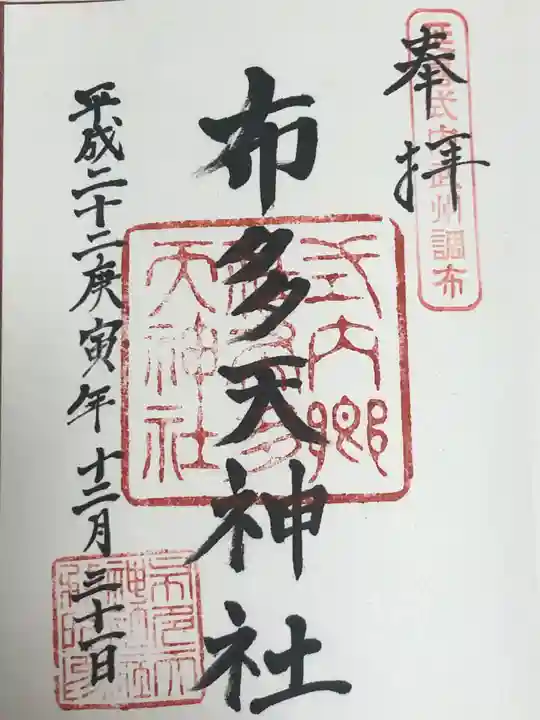 奉拝
式内武州調布
布多天神社
式内郷
天神社
平成二十二庚寅年十二月三十一日